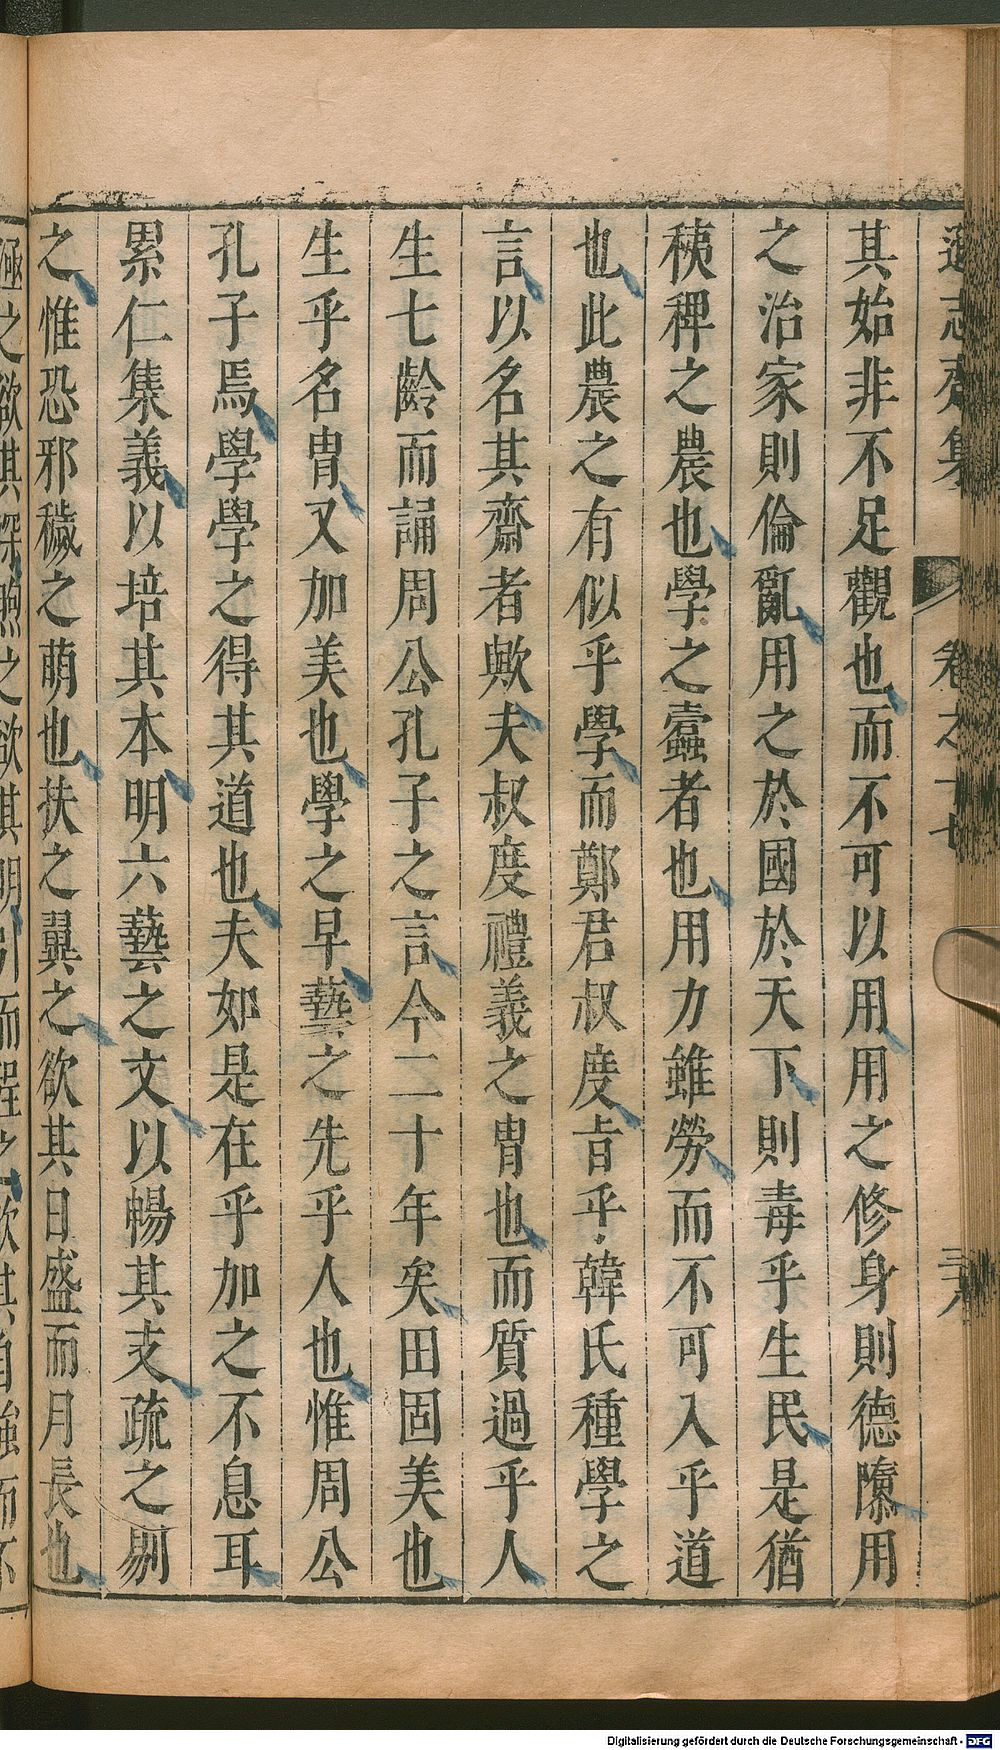 遜志齋集 卷之十七 三八
其始非不足觀也而不可以用用之修身則德隳用
之治家則倫亂用之於國於天下則毒乎生民是猶
稊稗之農也學之蠹者也用力雖勞而不可入乎道
也此農之有似乎學而鄭君叔度旨乎韓氏種學之
言以名其齋者歟夫叔度禮義之胄也而質過乎人
生七齡而誦周公孔子之言今二十年矣田固美也
生乎名胄又加美也學之早藝之先乎人也惟周公
孔子焉學學之得其道也夫如是在乎加之不息耳
累仁集義以培其本明六藝之文以暢其支疏之剔
之惟恐邪穢之萌也扶之翼之欲其日盛而月長也
極之欲其深煦之欲其明引而程之欲其自強而不
Digitalisierung gefördert durch die Deutsche Forschungsgemeinschaft - DFG